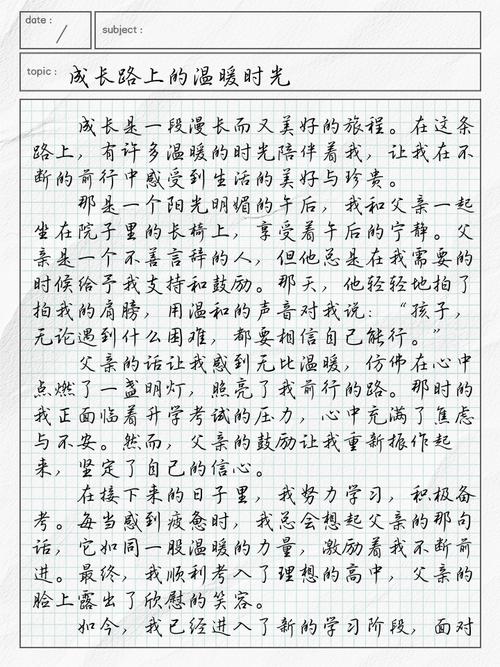 date :
/
subject :
topic : 成长路上的温暖时光
成长是一段漫长而又美好的旅程。在这条
路上，有许多温暖的时光陪伴着我，让我在不
断的前行中感受到生活的美好与珍贵。
那是一个阳光明媚的午后，我和父亲一起
坐在院子里的长椅上，享受着午后的宁静。父
亲是一个不善言辞的人，但他总是在我需要的
时候给予我支持和鼓励。那天，他轻轻地拍了
拍我的肩膀，用温和的声音对我说：“孩子，
无论遇到什么困难，都要相信自己能行。”
父亲的话让我感到无比温暖，仿佛在心中
点燃了一盏明灯，照亮了我前行的路。那时的
我正面临着升学考试的压力，心中充满了焦虑
与不安。然而，父亲的鼓励让我重新振作起
来，坚定了自己的信心。
在接下来的日子里，我努力学习，积极备
考。每当感到疲惫时，我总会想起父亲的那句
话，它如同一股温暖的力量，激励着我不断前
进。最终，我顺利考入了理想的高中，父亲的
脸上露出了欣慰的笑容。
如今，我已经进入了新的学习阶段，面对